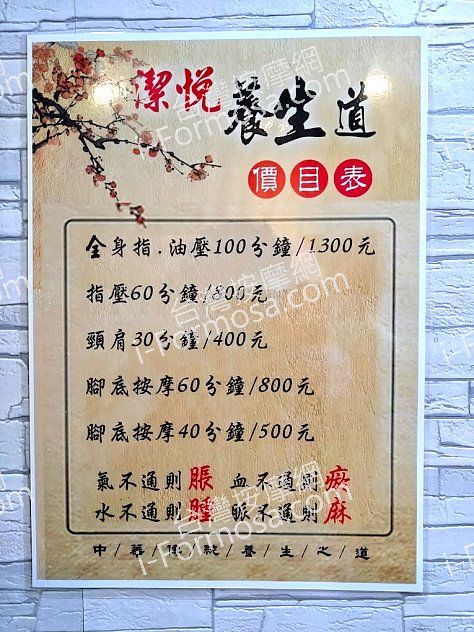 潔悅
養生道
價目表
全身指.油壓100分鐘/1300元
指壓60分鐘/800元
頸肩30分鐘/400元
腳底按摩60分鐘/800元
腳底按摩40分鐘/500元
氣不通則脹 血不通則瘀
水不通則腫 脈不通則麻
中/華/傳/統/養/生/之/道
台灣按摩網
i-Formosa.com